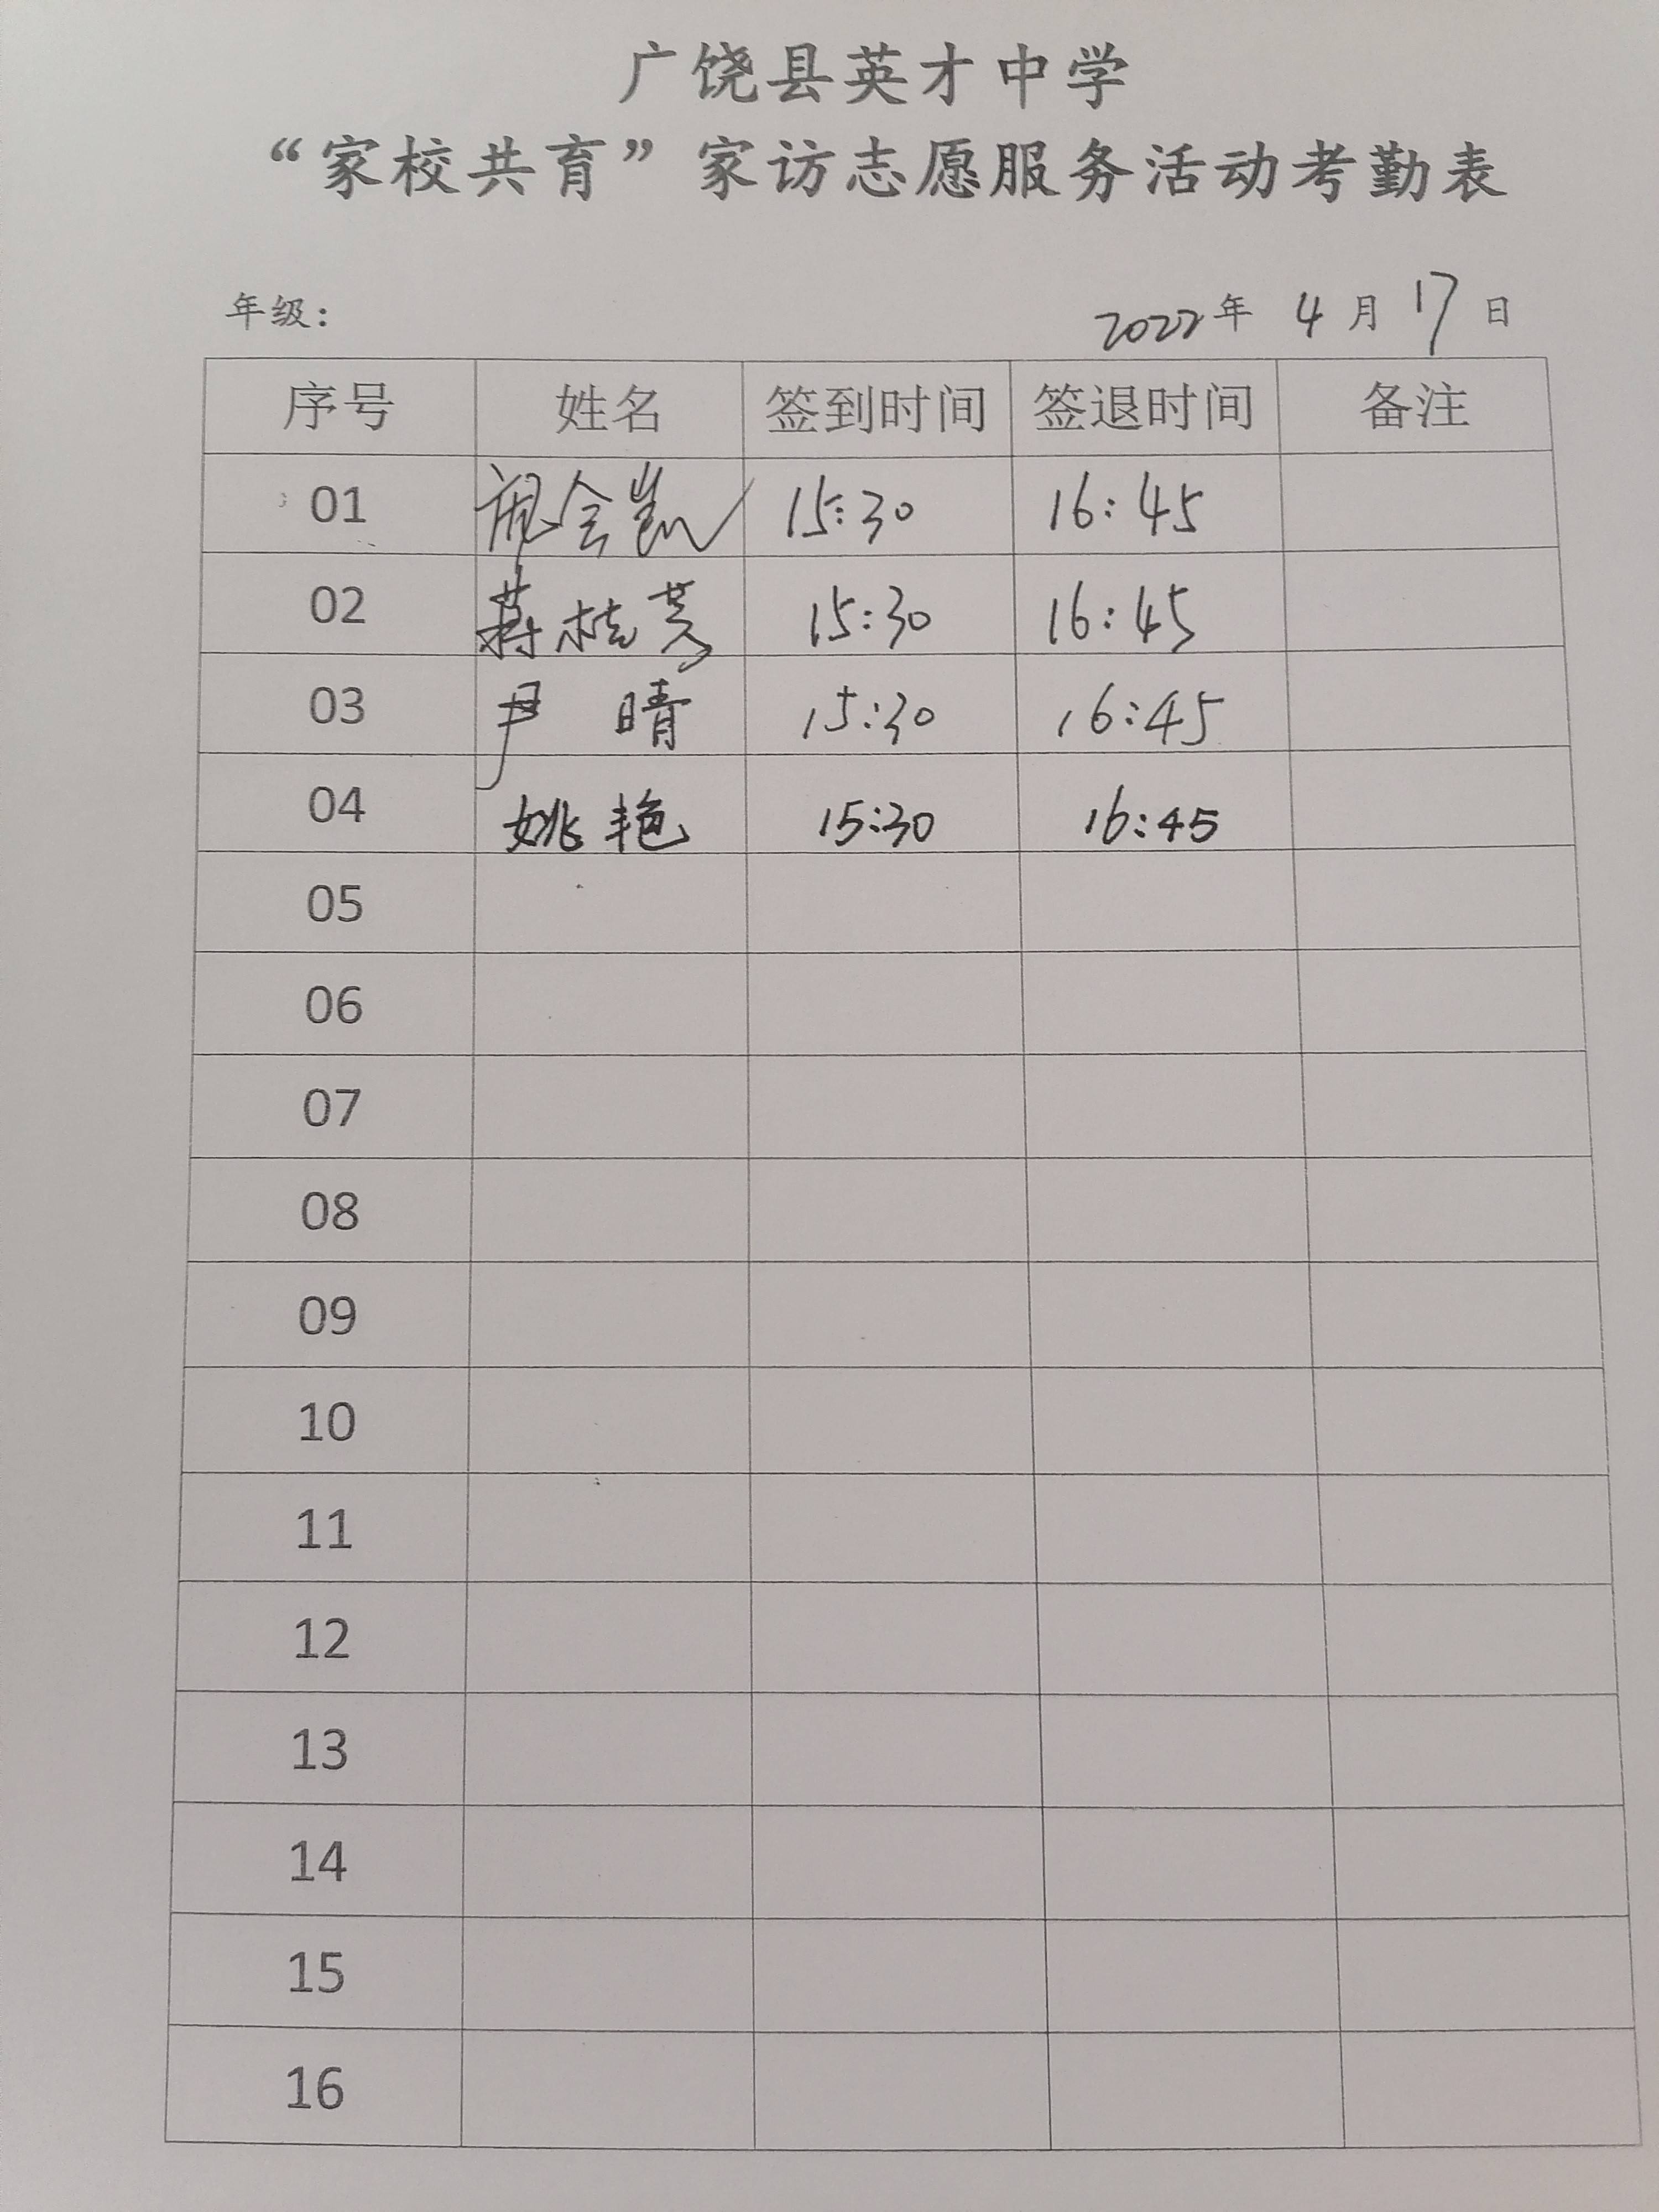 广饶县英才中学
“家校共育”家访志愿服务活动考勤表
年级： 2022年 4月 17日
序号 姓名 签到时间 签退时间 备注
01 会凯 15:30 16:45
02 蒋桂芳 15:30 16:45
03 尹晴 15:30 16:45
04 姚艳 15:30 16:45
05
06
07
08
09
10
11
12
13
14
15
16